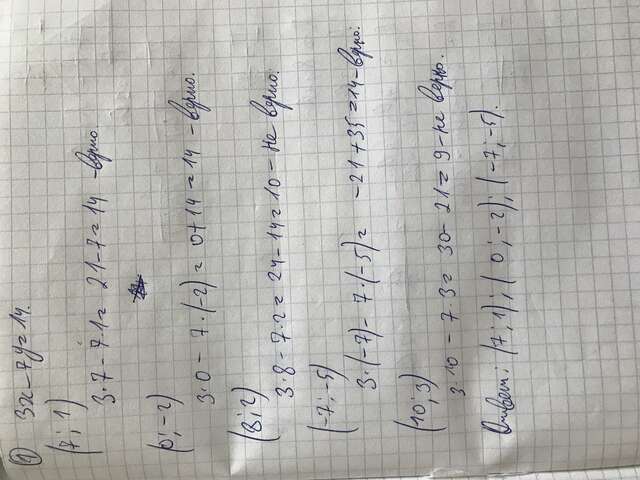 ① 3x - 7y = 14.
(7; 1)
3·7 - 7·1 = 21 - 7 = 14 - верно.
(0; -2)
3·0 - 7·(-2) = 0 + 14 = 14 - верно.
(8; 2)
3·8 - 7·2 = 24 - 14 = 10 - не верно.
(-7; -5)
3·(-7) - 7·(-5) = -21 + 35 = 14 - верно.
(10; 3)
3·10 - 7·3 = 30 - 21 = 9 - не верно.
Ответ: (7; 1); (0; -2); (-7; -5).